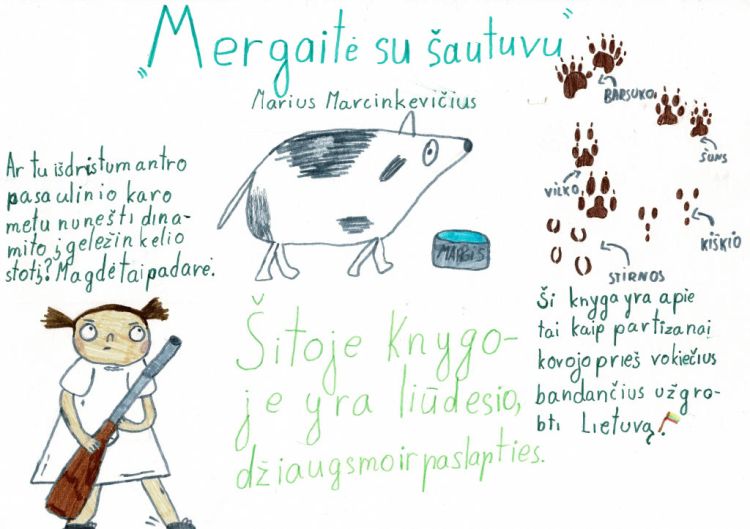 „Mergaitė su šautuvu"
Marius Marcinkevičius
Ar tu išdristum antro
pasaulinio karo
metu nunešti dina-
mito į geležinkelio
stotį? Magdė tai padarė.
MARGIS
BARSUKO
ŠUNS
VILKO
KIŠKIO
STIRNOS
Šitoje knygo-
je yra liūdesio,
džiaugsmo ir paslapties.
Ši knyga yra apie
tai kaip partizanai
kovojo prieš vokiečius
bandančius užgro-
bti Lietuvą!